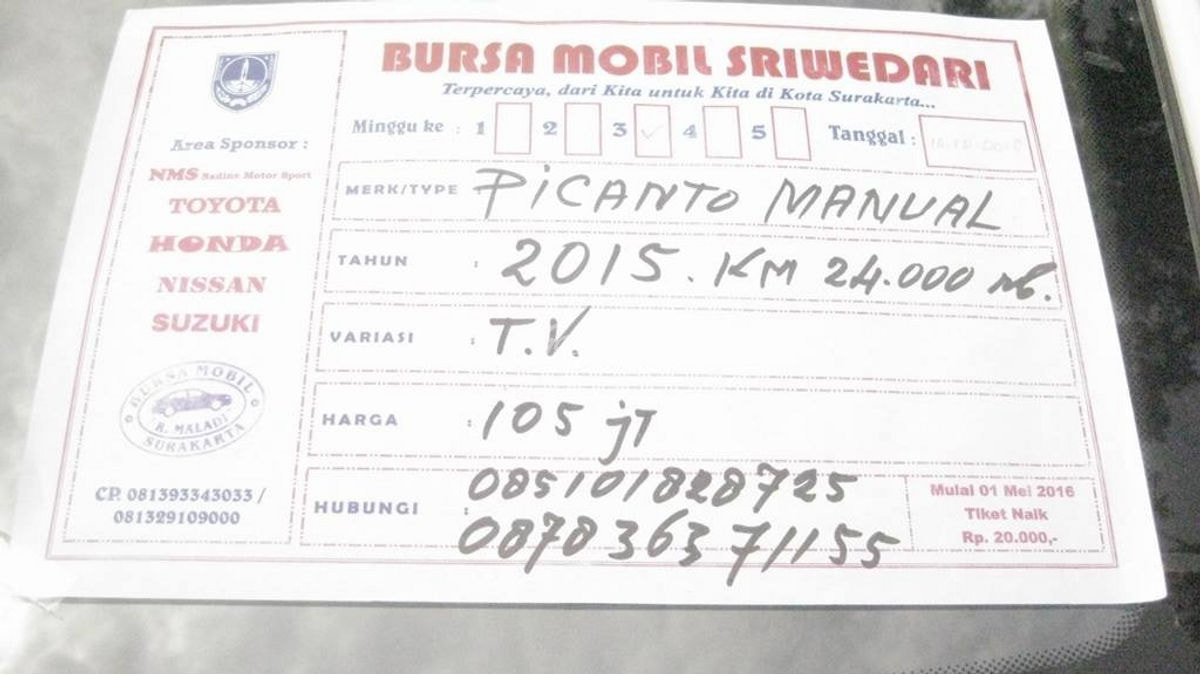 BURSA MOBIL SRIWEDARI
Terpercaya, dari Kita untuk Kita di Kota Surakarta...
Minggu ke : 1 2 3 ✓ 4 5 Tanggal :
Area Sponsor :
NMS Nadine Motor Sport
TOYOTA
HONDA
NISSAN
SUZUKI
BURSA MOBIL
R. MALADI
SURAKARTA
CP. 081393343033 /
081329109000
MERK/TYPE : PiCANTO MANUAL
TAHUN : 2015. KM 24.000
VARIASI : T.V.
HARGA : 105 jT
HUBUNGI : 085101828725
087836371155
Mulai 01 Mei 2016
Tiket Naik
Rp. 20.000,-